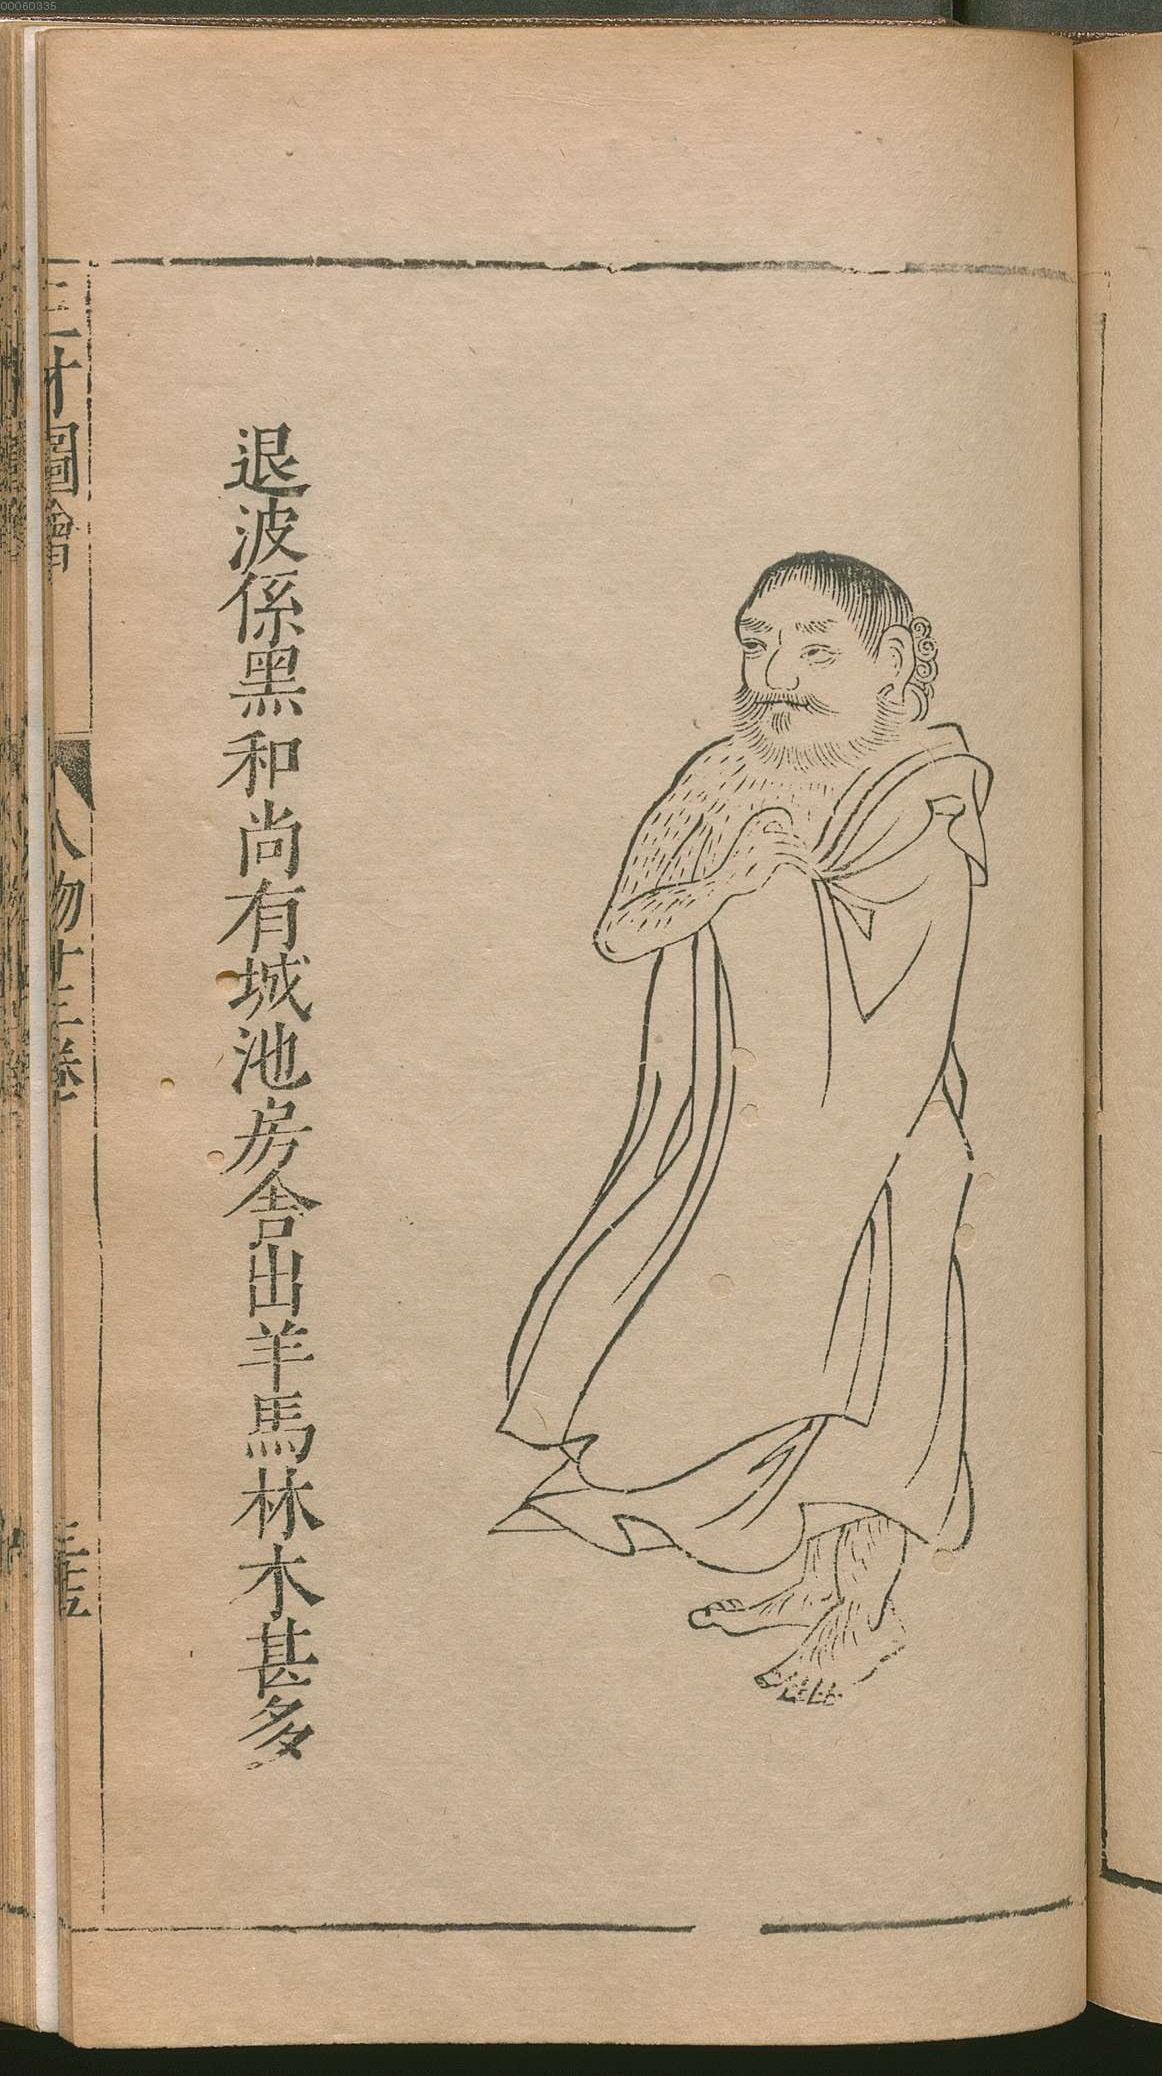 00060335
退波係黑和尚有城池房舍出羊馬林木甚多
三才圖會
人物十三卷